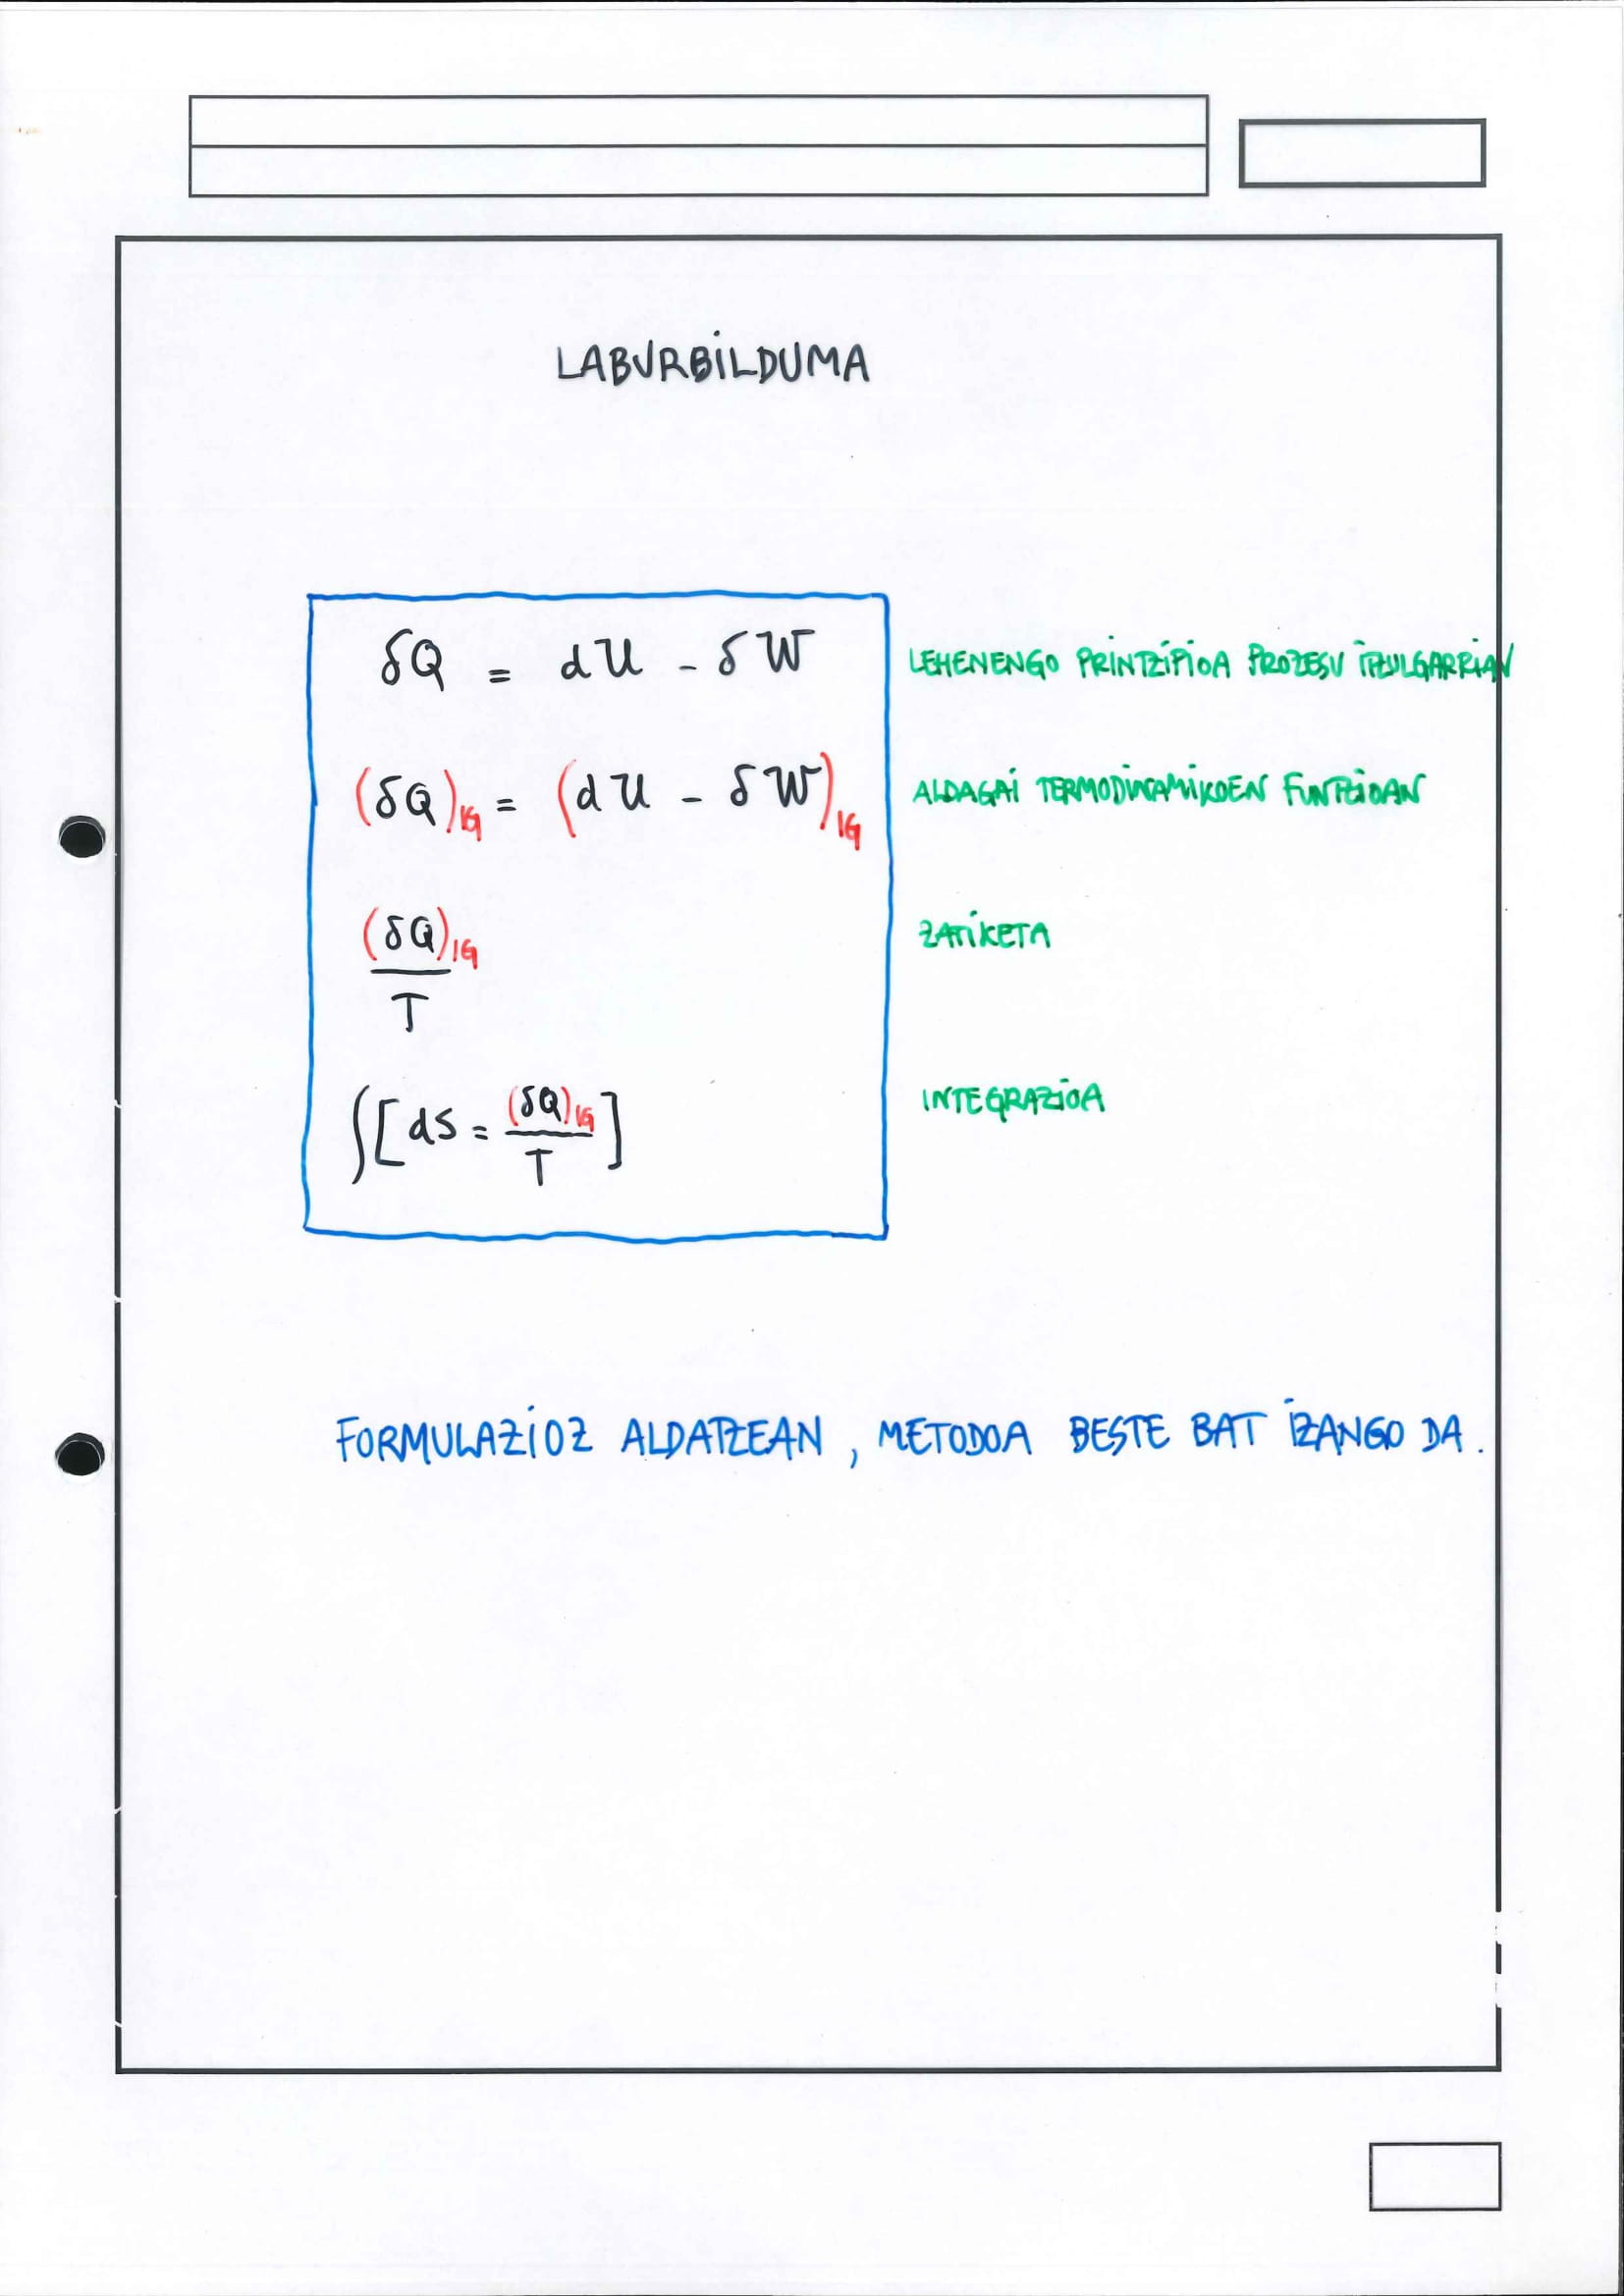 LABURBILDUMA
δQ = dU - δW LEHENENGO PRINTZIPIOA PROZESU ITZULGARRIAN
(δQ)IG = (dU - δW)IG ALDAGAI TERMODINAMIKOEN FUNTZIOAN
(δQ)IG / T ZATIKETA
∫[dS = (δQ)IG / T] INTEGRAZIOA
FORMULAZIOZ ALDATZEAN, METODOA BESTE BAT IZANGO DA.